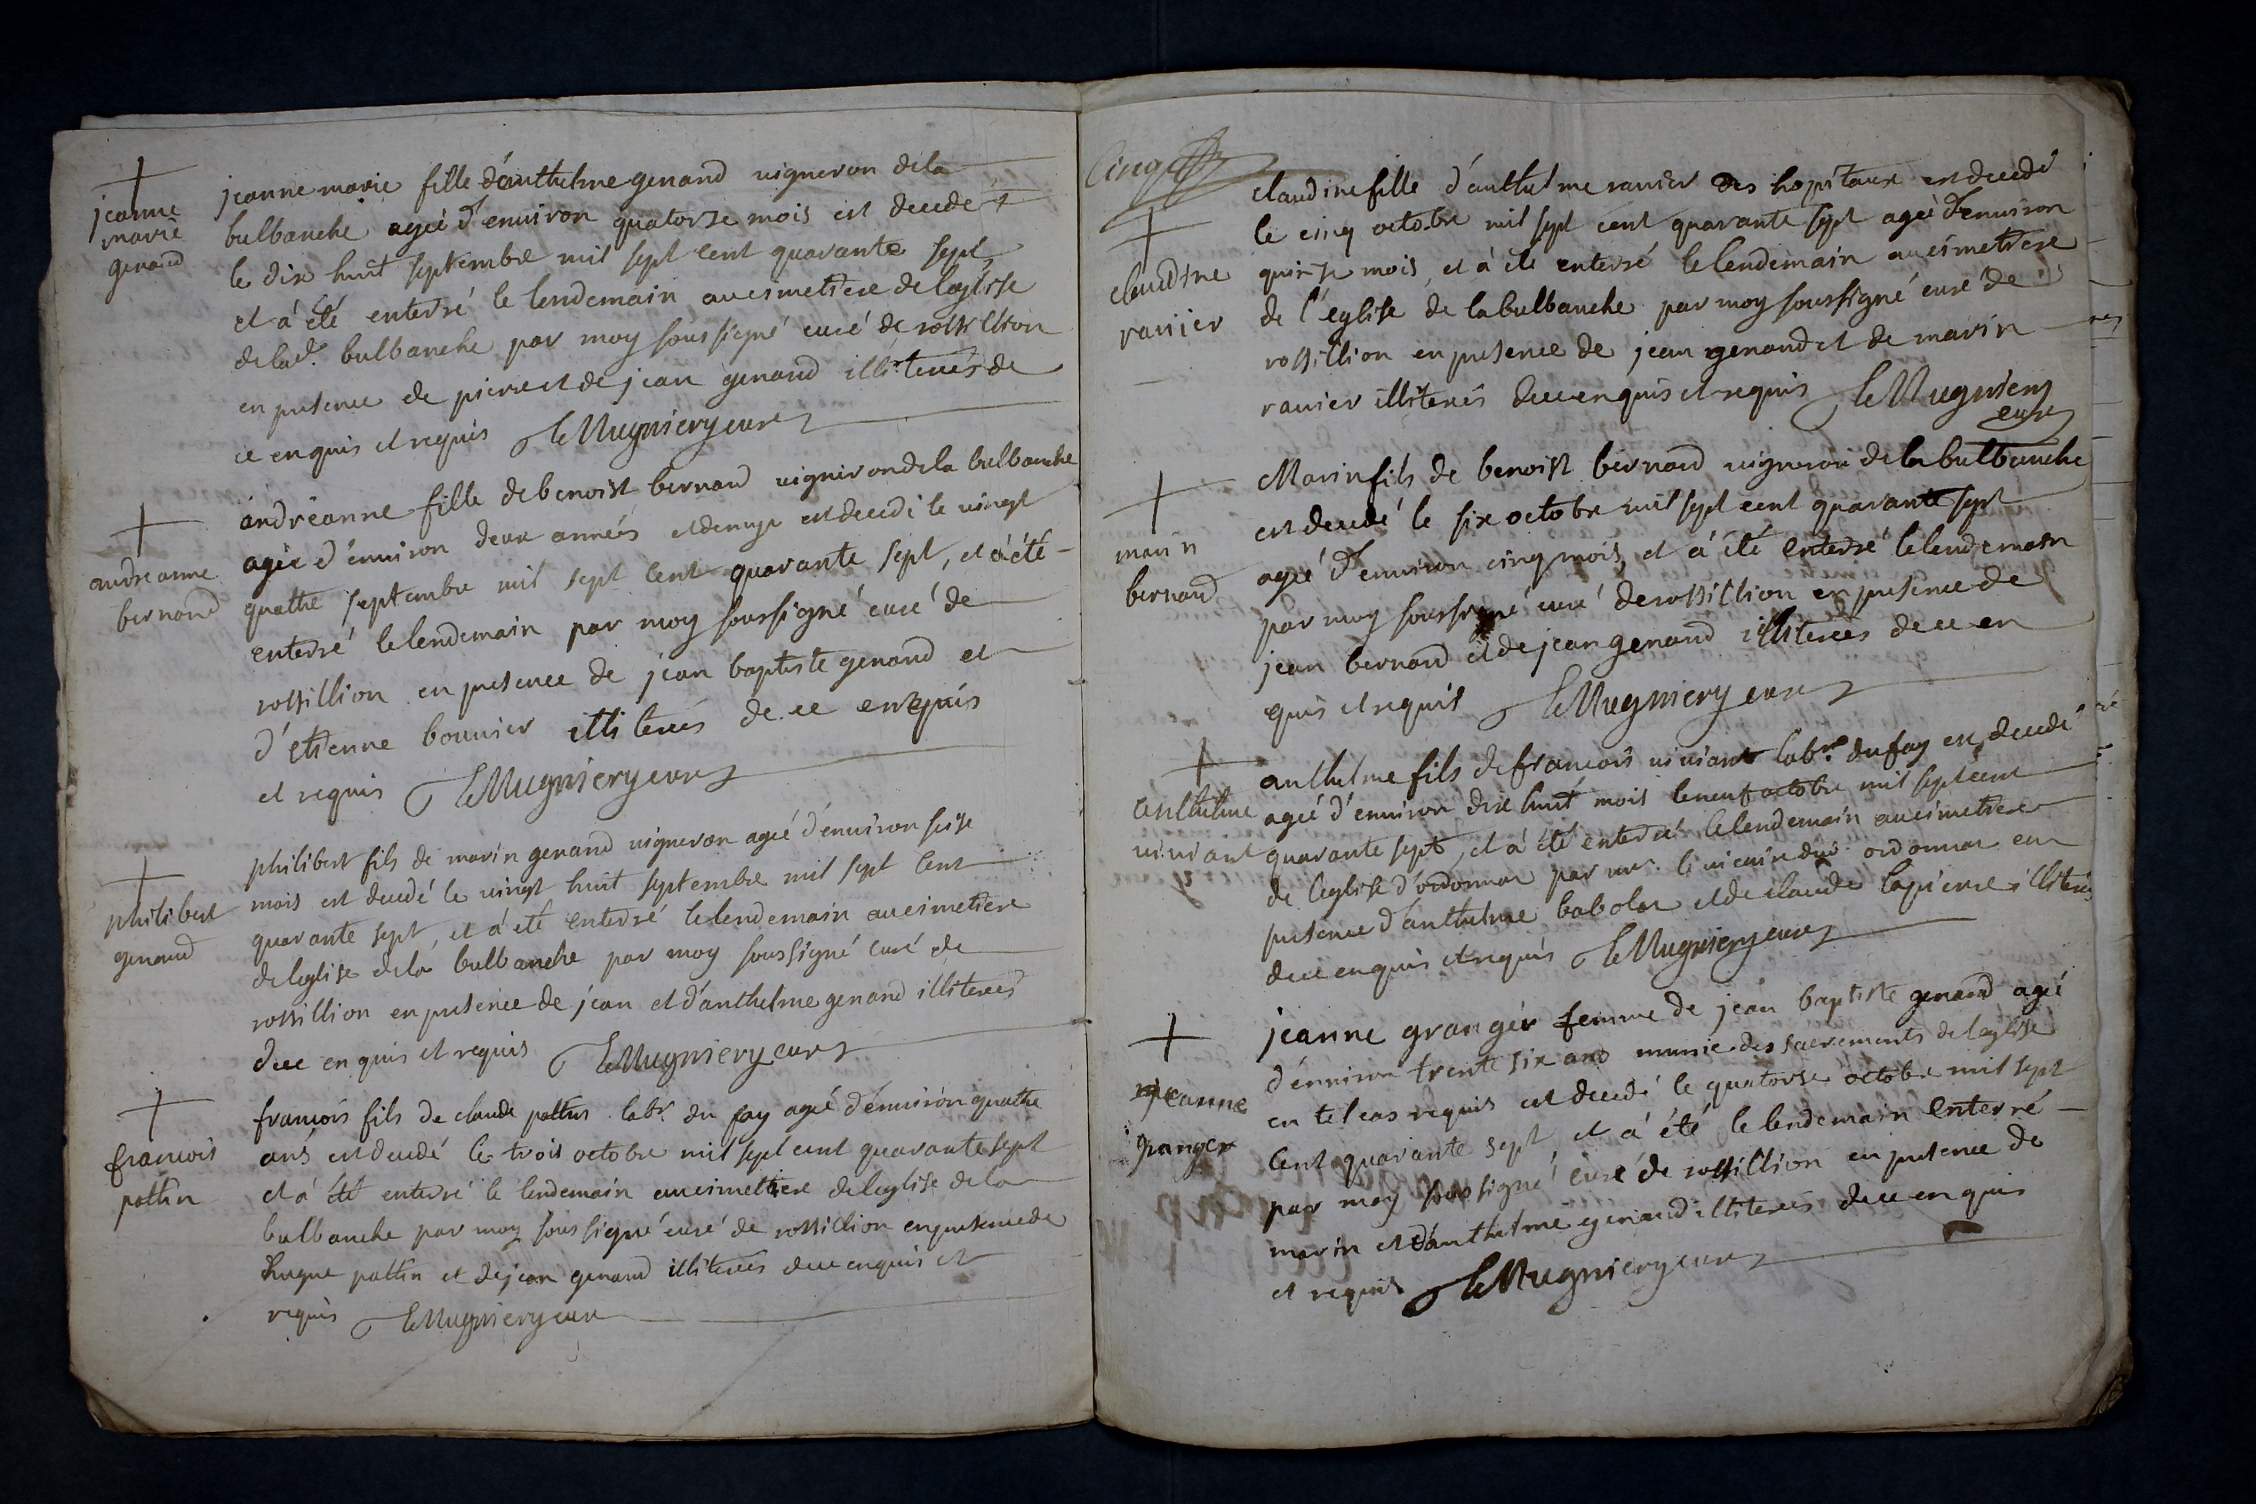 jeanne
marie
genand
jeanne marie fille d'anthelme genand vigneron de la
bulbanche agée d'environ quatorze mois est decedé
le dix huit septembre mil sept cent quarante sept
et à été enterré le lendemain au cimetiere de l'eglise
de lad. bulbanche par moy soussigné curé de rossillion
en presence de pierre et de jean genand illiterés de
ce enquis et requis LeMugniery curé
andreanne
bernand
andréanne fille de benoist bernand vigneron de la bulbanche
agée d'environ deux années et demye est decedé le vingt
quattre septembre mil sept cent quarante sept, et à été
enterré le lendemain par moy soussigné curé de
rossillion en presence de jean baptiste genand et
d'etienne bouvier illiterés de ce enquis
et requis LeMugniery curé
philibert
genand
philibert fils de marin genand vigneron agé d'environ seize
mois est decedé le vingt huit septembre mil sept cent
quarante sept, et à été enterré le lendemain au cimetiere
de l'eglise de la bulbanche par moy soussigné curé de
rossillion en presence de jean et d'anthelme genand illiterés
de ce enquis et requis LeMugniery curé
francois
pottin
francois fils de claude pottin labr. du fay agé d'environ quattre
ans est decedé le trois octobre mil sept cent quarante sept
et à été enterré le lendemain au cimettiere de l'eglise de la
bulbanche par moy soussigné curé de rossillion en presence de
hugue pottin et de jean genand illiterés de ce enquis et
requis LeMugniery curé
Cinq
claudine
ravier
claudine fille d'anthelme ravier des hopitaux est decedé
le cinq octobre mil sept cent quarante sept agée d'environ
quinze mois, et à été enterré le lendemain au cimettiere
de l'eglise de la bulbanche par moy soussigné curé de
rossillion en presence de jean genand et de marin
ravier illiterés de ce enquis et requis LeMugniery
curé
marin
bernand
Marin fils de benoist bernand vigneron de la bulbanche
est decedé le six octobre mil sept cent quarante sept
agé d'environ cinq mois, et à été enterré le lendemain
par moy soussigné curé de rossillion en presence de
jean bernand et de jean genand illiterés de ce en
quis et requis LeMugniery curé
anthelme
viviant
anthelme fils de francois viviant labr. du fay est decedé
agé d'environ dix huit mois le neuf octobre mil sept cent
quarante sept, et à été enterré le lendemain au cimettiere
de l'eglise d'ordonnas par mr. le vicaire dud. ordonnas en
presence d'anthelme babolas et de claude lapierre illiterés
de ce enquis et requis LeMugniery curé
jeanne
granger
jeanne granger femme de jean baptiste genand agé
d'environ trente six ans munie des sacrements de l'eglise
en tel cas requis est decedé le quatorse octobre mil sept
cent quarante sept et à été le lendemain enterré
par moy soussigné curé de rossillion en presence de
marin et d'anthelme genand illiterés de ce enquis
et requis LeMugniery curé